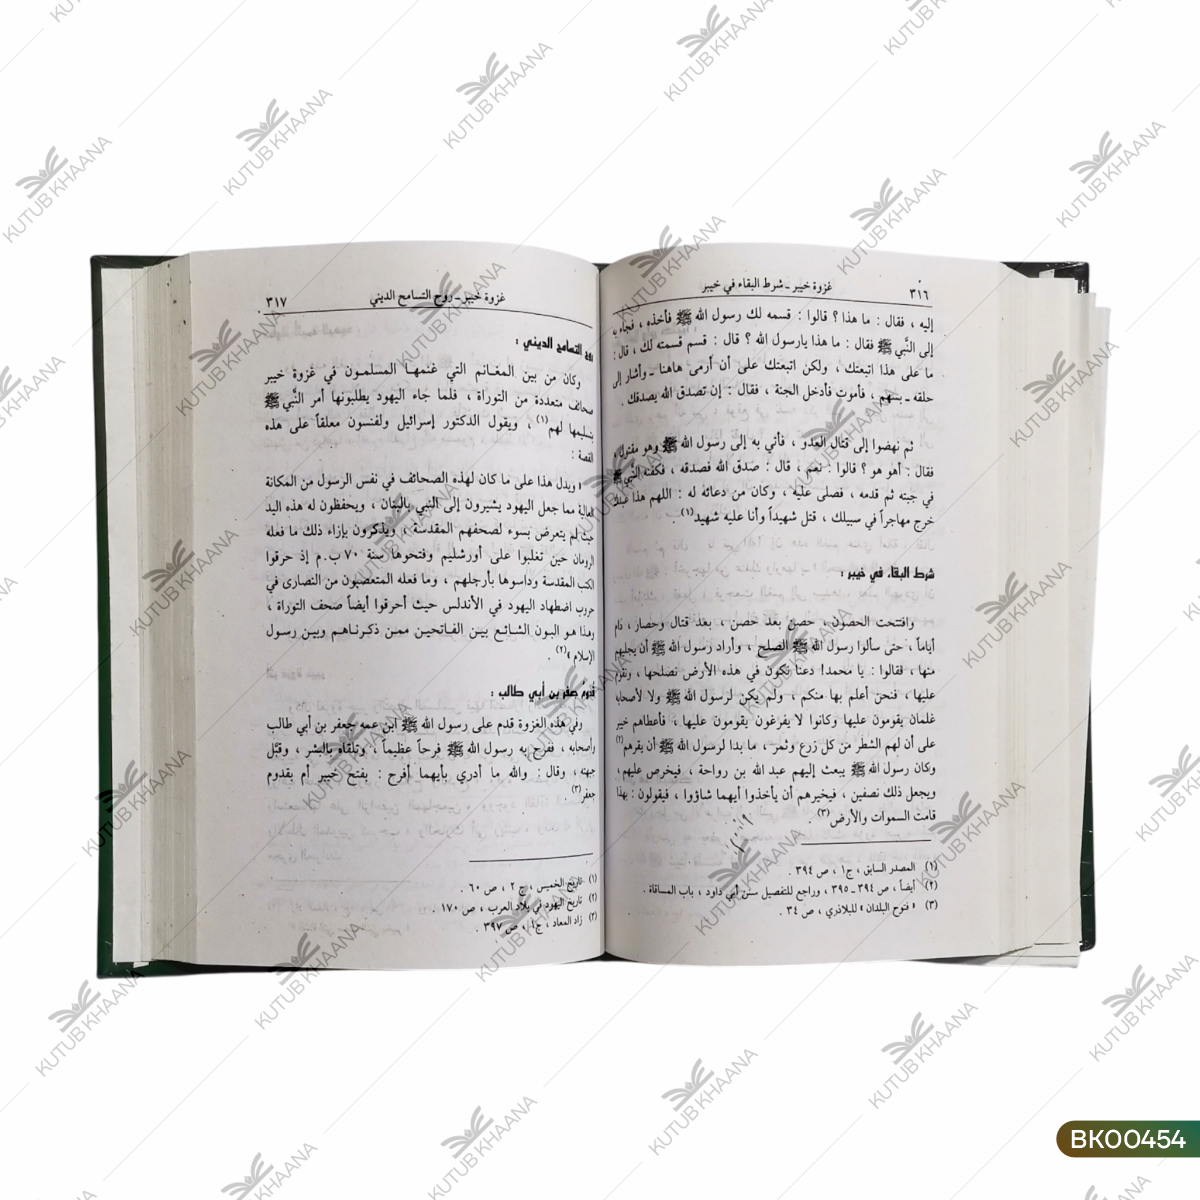 ٣١٦
غزوة خيبر ـ شرط البقاء في خيبر
إليه ، فقال : ما هذا ؟ قالوا : قسمه لك رسول الله ﷺ فأخذه ، فجاء به
إلى النَّبي ﷺ فقال : ما هذا يارسول الله ؟ قال : قسم قسمته لك ، قال :
ما على هذا اتبعتك ، ولكن اتبعتك على أن أرمى هاهنا ـ وأشار إلى
حلقه ـ بسهم ، فأموت فأدخل الجنة ، فقال : إن تصدق الله يصدقك .
ثم نهضوا إلى قتال العدو ، فأتي به إلى رسول الله ﷺ وهو مقتول ،
فقال : أهو هو ؟ قالوا : نعم ، قال : صدق الله فصدقه ، فكفنه النَّبي ﷺ
في جبته ثم قدمه ، فصلى عليه ، وكان من دعائه له : اللهم هذا عبدك
خرج مهاجراً في سبيلك ، قتل شهيداً وأنا عليه شهيد(١) .
شرط البقاء في خيبر :
وافتتحت الحصون ، حصن بعد حصن ، بعد قتال وحصار ، دام
أياماً ، حتى سألوا رسول الله ﷺ الصلح ، وأراد رسول الله ﷺ أن يجليهم
منها ، فقالوا : يا محمد! دعنا نكون في هذه الأرض نصلحها ، ونقوم
عليها ، فنحن أعلم بها منكم ، ولم يكن لرسول الله ﷺ ولا لأصحابه
غلمان يقومون عليها وكانوا لا يفرغون يقومون عليها ، فأعطاهم خيبر
على أن لهم الشطر من كل زرع وثمر ، ما بدا لرسول الله ﷺ أن يقرهم(٢)
وكان رسول الله ﷺ يبعث إليهم عبد الله بن رواحة ، فيخرص عليهم ،
ويجعل ذلك نصفين ، فيخيرهم أن يأخذوا أيهما شاؤوا ، فيقولون : بهذا
قامت السموات والأرض(٣)
(١) المصدر السابق ، ج١ ، ص ٣٩٤ .
(٢) أيضاً ، ص ٣٩٤ـ ٣٩٥ ، وراجع للتفصيل سنن أبي داود ، باب المساقاة .
(٣) « فتوح البلدان » للبلاذري ، ص ٣٤ .
غزوة خيبر ـ روح التسامح الديني
٣١٧
روح التسامح الديني :
وكان من بين المغانم التي غنمها المسلمون في غزوة خيبر
صحائف متعددة من التوراة ، فلما جاء اليهود يطلبونها أمر النَّبي ﷺ
بتسليمها لهم(١) ، ويقول الدكتور إسرائيل ولفنسون معلقاً على هذه
القصة :
« ويدل هذا على ما كان لهذه الصحائف في نفس الرسول من المكانة
العالية مما جعل اليهود يشيرون إلى النبي بالبنان ، ويحفظون له هذه اليد
حيث لم يتعرض بسوء لصحفهم المقدسة ، ويذكرون بإزاء ذلك ما فعله
الرومان حين تغلبوا على أورشليم وفتحوها سنة ٧٠ ب.م إذ حرقوا
الكتب المقدسة وداسوها بأرجلهم ، وما فعله المتعصبون من النصارى في
حروب اضطهاد اليهود في الأندلس حيث أحرقوا أيضاً صحف التوراة ،
وهذا هو البون الشائع بين الفاتحين ممن ذكرناهم وبين رسول
الإسلام »(٢) .
قدوم جعفر بن أبي طالب :
وفي هذه الغزوة قدم على رسول الله ﷺ ابن عمه جعفر بن أبي طالب
وأصحابه ، ففرح به رسول الله ﷺ فرحاً عظيماً ، وتلقاه بالبشر ، وقبَّل
جبهته ، وقال : والله ما أدري بأيهما أفرح : بفتح خيبر أم بقدوم
جعفر(٣)
(١) تاريخ الخميس ، ج ٢ ، ص ٦٠ .
(٢) تاريخ اليهود في بلاد العرب ، ص ١٧٠ .
(٣) زاد المعاد ، ج١ ، ص ٣٩٧ .
KUTUB KHAANA
BK00454